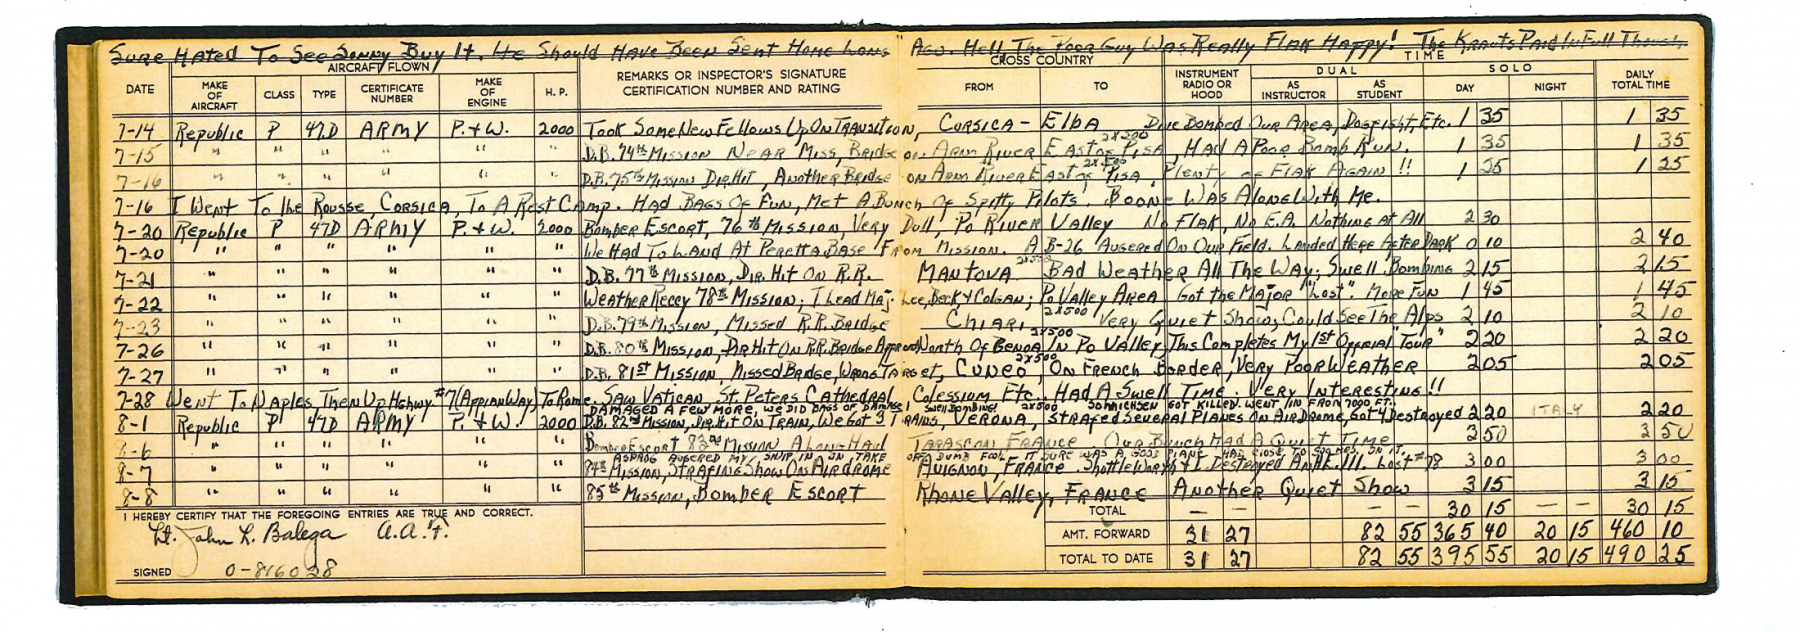 Sure Hated To See Sonny Buy It. He Should Have Been Sent Home Long Ago. Hell, The Poor Guy Was Really Flak Happy! The Krauts Paid In Full Though.
AIRCRAFT FLOWN CROSS COUNTRY TIME
DATE MAKE OF AIRCRAFT CLASS TYPE CERTIFICATE NUMBER MAKE OF ENGINE H. P. REMARKS OR INSPECTOR'S SIGNATURE CERTIFICATION NUMBER AND RATING FROM TO INSTRUMENT RADIO OR HOOD DUAL AS INSTRUCTOR AS STUDENT SOLO DAY NIGHT DAILY TOTAL TIME
7-14 Republic P 47D ARMY P.+W. 2000 Took Some New Fellows Up On Transition, Corsica - Elba Dive Bombed Our Area, Dogfight, Etc. 1 35 1 35
7-15 " " " " " " D.B. 74th Mission Near Miss, Bridge on Arno River East of Pisa, 2x500 Had A Poor Bomb Run. 1 35 1 35
7-16 " " " " " " D.B. 75th Mission Dir. Hit, Another Bridge on Arno River East of Pisa, 2x500 Plenty of Flak Again!! 1 25 1 25
7-16 I Went To Ile Rousse, Corsica, To A Rest Camp. Had Bags Of Fun, Met A Bunch Of Spitty Pilots. Boone Was Along With Me.
7-20 Republic P 47D ARMY P.+W. 2000 Bomber Escort, 76th Mission, Very Dull, Po River Valley No Flak, No E.A. Nothing At All 2 30
7-20 " " " " " " We Had To Land At Peretta Base From Mission. A B-26 Augered On Our Field. Landed Here After Dark 0 10 2 40
7-21 " " " " " " D.B. 77th Mission, Dir. Hit On R.R. Mantova Bad Weather All The Way; Swell Bombing 2 15 2 15
7-22 " " " " " " Weather Reccy 78th Mission; I Lead Maj. Lee, Beck & Colgan; Po Valley Area Got the Major "Lost". More Fun 1 45 1 45
7-23 " " " " " " D.B. 79th Mission, Missed R.R. Bridge Chiari, 2x500 Very Quiet Show; Could See The Alps 2 10 2 10
7-26 " " " " " " D.B. 80th Mission, Dir Hit On R.R. Bridge Approach North Of Genoa In Po Valley, 2x500 This Completes My 1st Official "Tour" 2 20 2 20
7-27 " " " " " " D.B. 81st Mission, Missed Bridge, Wrong Target, Cuneo, 2x500 On French Border, Very Poor Weather 2 05 2 05
7-28 Went To Naples Then Up Hghwy. #7 (Appian Way) To Rome. Saw Vatican, St. Peters Cathedral, Colessium Etc. Had A Swell Time. Very Interesting!!
Damaged A Few More, We Did Bags Of Damage! Swell Bombing! 2x500 Sonnichsen Got Killed, Went In From 7000 Ft.
8-1 Republic P 47D ARMY P.+W. 2000 D.B. 82nd Mission, Dir. Hit On Train, We Got 3 Trains, Verona, Strafed Several Planes On Airdrome, Got 4 Destroyed 2 20 ITALY 2 20
8-6 " " " " " " Bomber Escort 83rd Mission A Long Haul Tarascon France Our Bunch Had A Quiet Time 3 50 3 50
Augered My Ship In On Take Off Dumb Fool It Sure Was A Good Plane Had Close To 200 Hrs. On It.
8-7 " " " " " " 84th Mission, Strafing Show On Airdrome Avignon, France Shuttleworth & I Destroyed An HE. 111. Lost #78 3 00 3 00
8-8 " " " " " " 85th Mission, Bomber Escort Rhone Valley, France Another Quiet Show 3 15 3 15
I HEREBY CERTIFY THAT THE FOREGOING ENTRIES ARE TRUE AND CORRECT. TOTAL — — — — 30 15 — — 30 15
Lt. John L. Balega A.A.F. AMT. FORWARD 31 27 82 55 365 40 20 15 460 10
SIGNED O-816028 TOTAL TO DATE 31 27 82 55 395 55 20 15 490 25